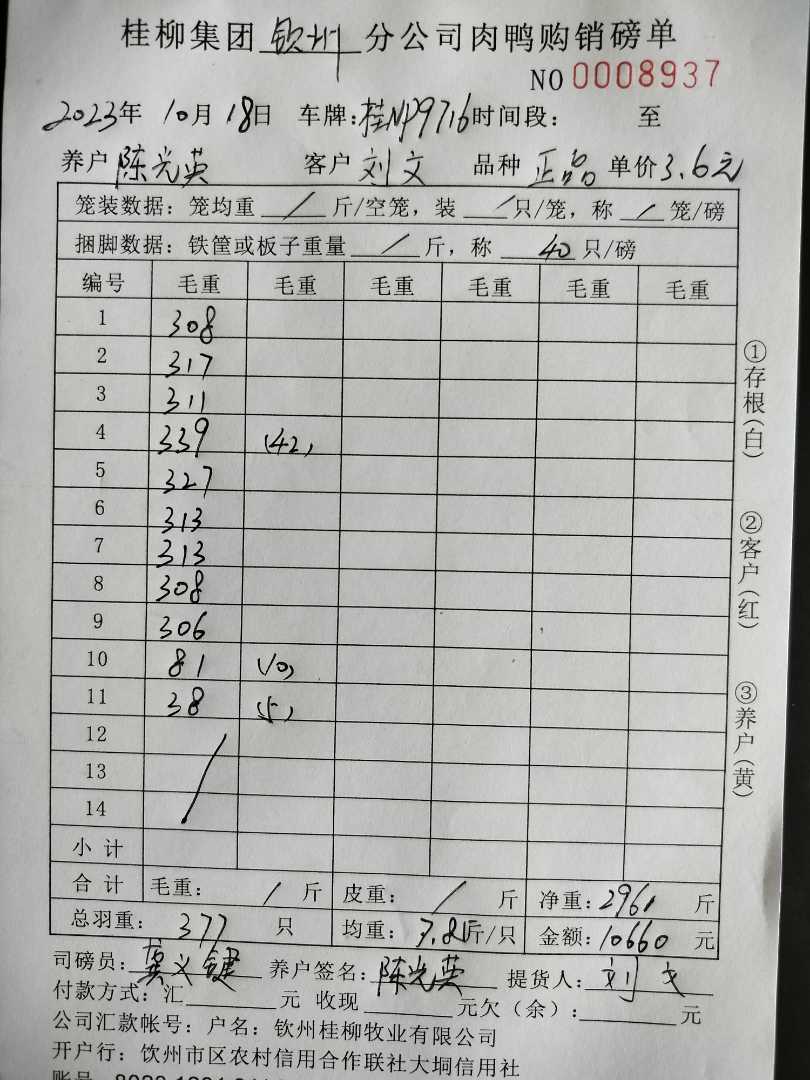 桂柳集团 钦州 分公司肉鸭购销磅单
NO 0008937
2023年 10月 18日 车牌:桂NP9716 时间段: 至
养户 陈光英 客户 刘文 品种 正品 单价 3.6元
笼装数据: 笼均重 / 斤/空笼, 装 / 只/笼, 称 / 笼/磅
捆脚数据: 铁筐或板子重量 / 斤, 称 40 只/磅
编号 毛重 毛重 毛重 毛重 毛重 毛重
1 308
2 317
3 311
4 339 (42)
5 327
6 313
7 313
8 308
9 306
10 81 (10)
11 38 (5)
12
13 /
14
小 计
合 计 毛重: / 斤 皮重: / 斤 净重: 2961 斤
总羽重: 377 只 均重: 7.85斤/只 金额: 10660 元
司磅员: 龚义键 养户签名: 陈光英 提货人: 刘文
付款方式: 汇 元 收现 元欠(余): 元
公司汇款帐号: 户名: 钦州桂柳牧业有限公司
开户行: 饮州市区农村信用合作联社大垌信用社
①存根(白)
②客户(红)
③养户(黄)